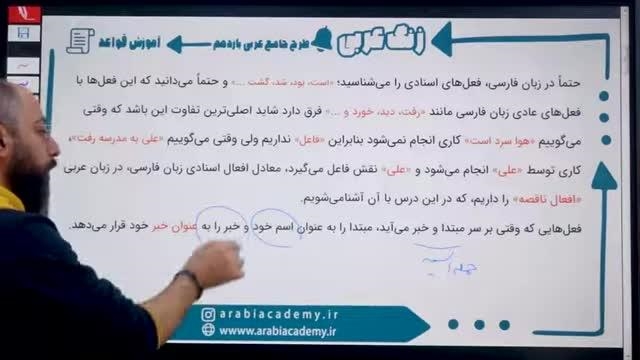 زنگ عربی
طرح جامع عربی یازدهم
آموزش قواعد
حتماً در زبان فارسی، فعل‌های اسنادی را می‌شناسید؛ «است، بود، شد، گشت ...» و حتماً می‌دانید که این فعل‌ها با
فعل‌های عادی زبان فارسی مانند «رفت، دید، خورد و ...» فرق دارد شاید اصلی‌ترین تفاوت این باشد که وقتی
می‌گوییم «هوا سرد است» کاری انجام نمی‌شود بنابراین «فاعل» نداریم ولی وقتی می‌گوییم «علی به مدرسه رفت»،
کاری توسط «علی» انجام می‌شود و «علی» نقش فاعل می‌گیرد، معادل افعال اسنادی زبان فارسی، در زبان عربی
«افعال ناقصه» را داریم، که در این درس با آن آشنا‌می‌شویم.
فعل‌هایی که وقتی بر سر مبتدا و خبر می‌آید، مبتدا را به عنوان اسم خود و خبر را به عنوان خبر خود قرار می‌دهد.
جمله اسمیه
arabiacademy.ir
www.arabiacademy.ir